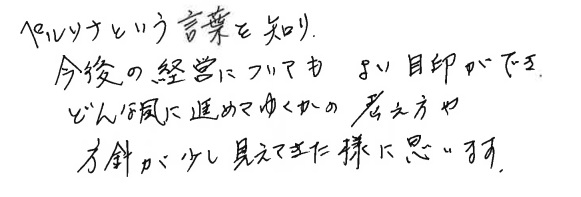 ペルソナという言葉を知り、
今後の経営についても よい目印ができ、
どんな風に進めてゆくかの考え方や
方針が少し見えてきた様に思います。